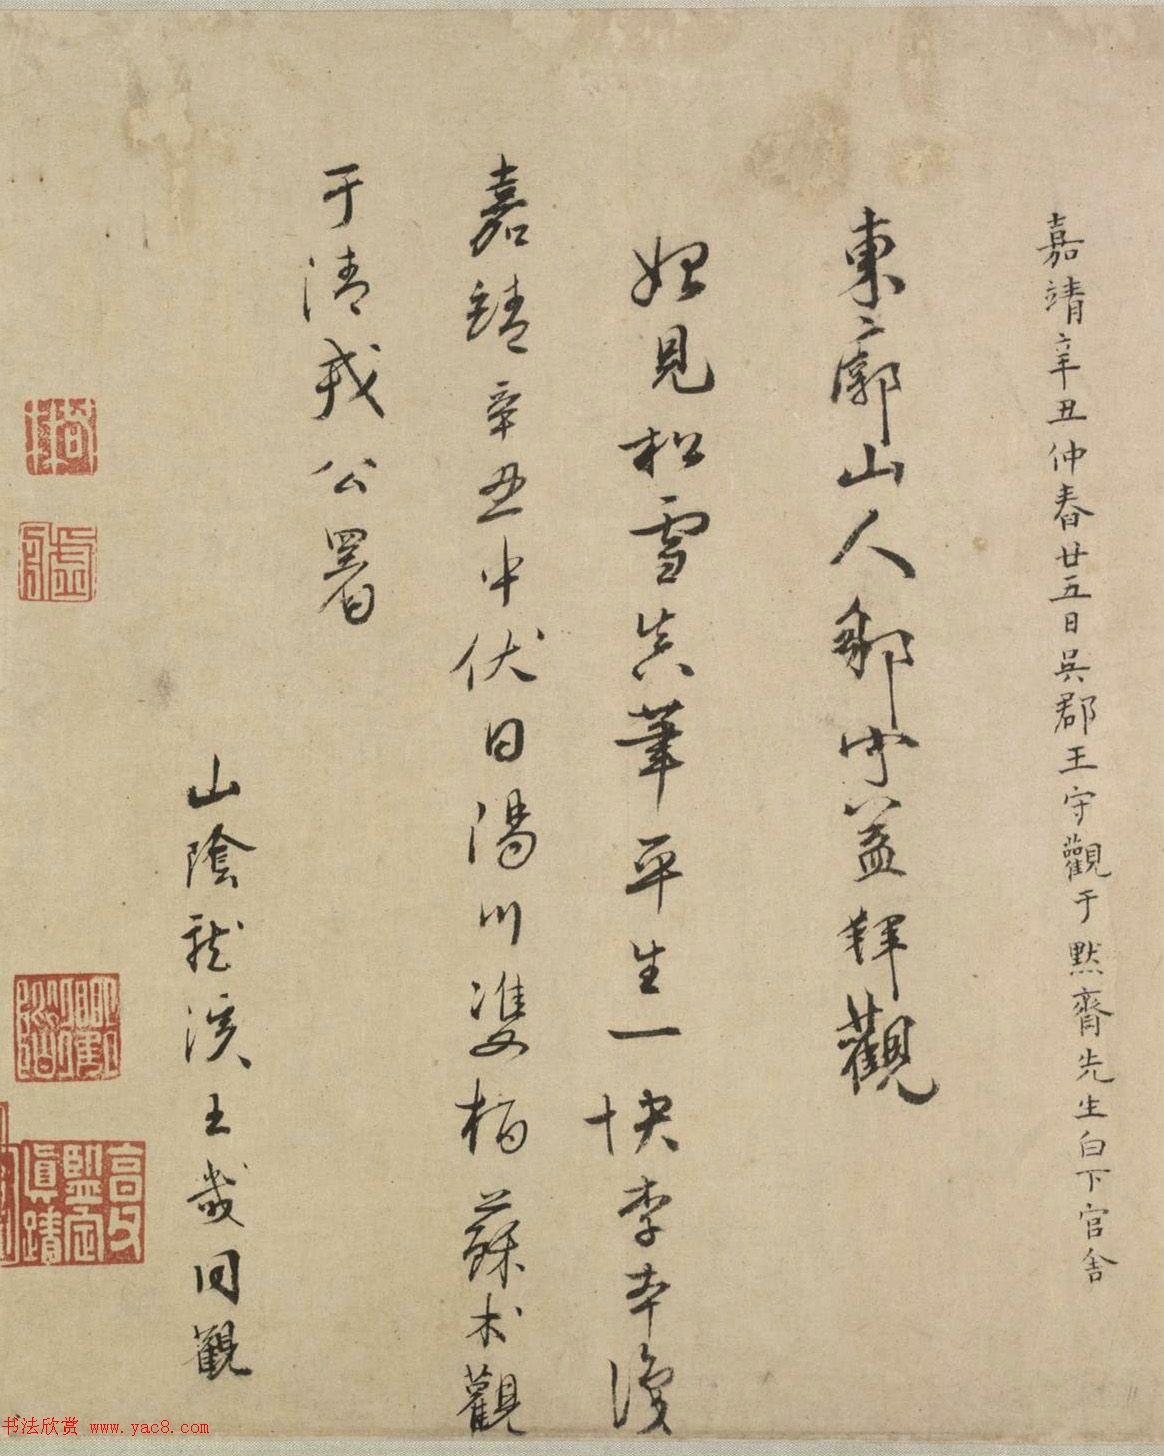 嘉靖辛丑仲春廿五日吳郡王守觀于默齋先生白下官舍
東廓山人鄒守益拜觀
始見松雪真筆平生一快李本澄
嘉靖辛丑中伏日陽川雙栢蘇术觀
于清戎公署
山陰龍溪王畿同觀
高氏鑒定真蹟
书法欣赏 www.yac8.com